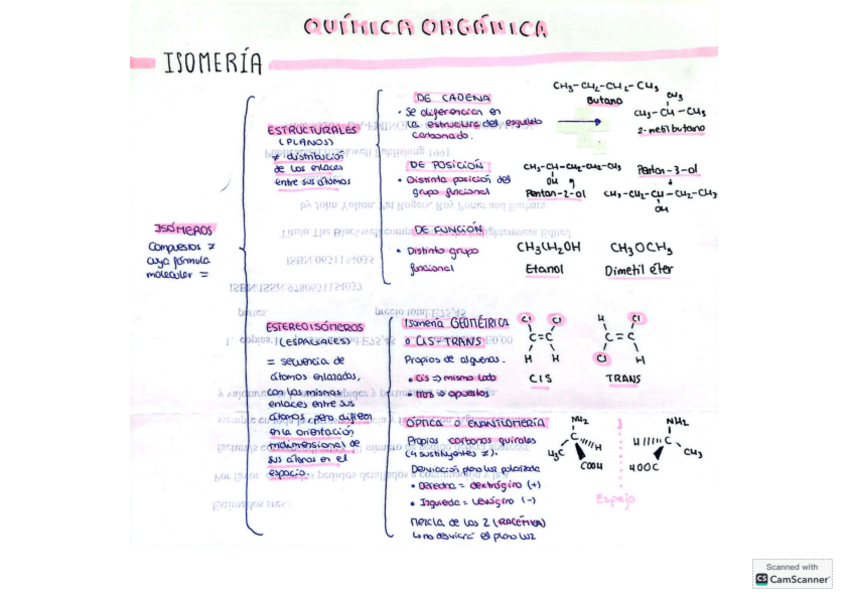 QUÍMICA ORGÁNICA
ISOMERÍA
ISÓMEROS
Compuestos ≠
cuya fórmula
molecular =
ESTRUCTURALES
(PLANOS)
≠ distribución
de los enlaces
entre sus átomos
DE CADENA
• Se diferencian en
la estructura del esqueleto
carbonado.
CH3-CH2-CH2-CH3
Butano
CH3
CH3-CH-CH3
2-metilbutano
DE POSICIÓN
• Distinta posición del
grupo funcional
CH3-CH-CH2-CH2-CH3
OH
Pentan-2-ol
Pentan-3-ol
CH3-CH2-CH-CH2-CH3
OH
DE FUNCIÓN
• Distinto grupo
funcional
CH3CH2OH
Etanol
CH3OCH3
Dimetil éter
ESTEREOISÓMEROS
(ESPACIALES)
= secuencia de
átomos enlazados,
con los mismos
enlaces entre sus
átomos pero difieren
en la orientación
tridimensional de
sus átomos en el
espacio.
Isomería GEOMÉTRICA
o CIS-TRANS
Propios de alquenos.
• Cis => mismo lado
• trans => opuestos
Cl Cl
C=C
H H
CIS
H Cl
C=C
Cl H
TRANS
ÓPTICA O ENANTIOMERÍA
Propios carbonos quirales
(4 sustituyentes ≠).
Desviación plano luz polarizada
• Derecha = dextrógiro (+)
• Izquierda = levógiro (-)
mezcla de los 2 (RACÉMICA)
↳ no desviará el plano luz
NH2
C H
H3C
COOH
NH2
H C
CH3
HOOC
Espejo
Scanned with
CS CamScanner